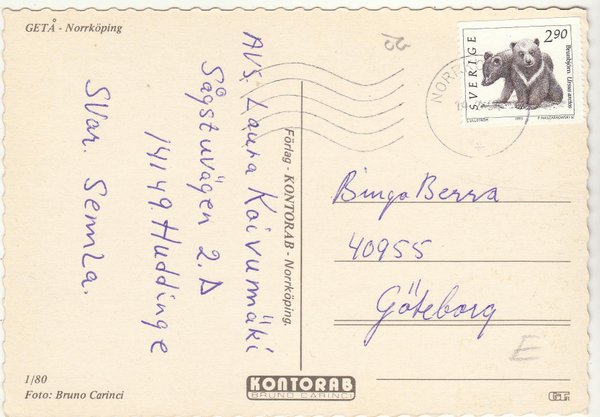 GETÅ - Norrköping
AVS. Laura Koivumäki
Sågstuvägen 2.D
14149 Huddinge
SVar. Semla.
1/80
Foto: Bruno Carinci
Förlag - KONTORAB - Norrköping.
KONTORAB
BRUNO CARINCI
SVERIGE
2.90
Brunbjörn. Ursus arctos
1993
NORR
Bingo Berra
40955
Göteborg
E